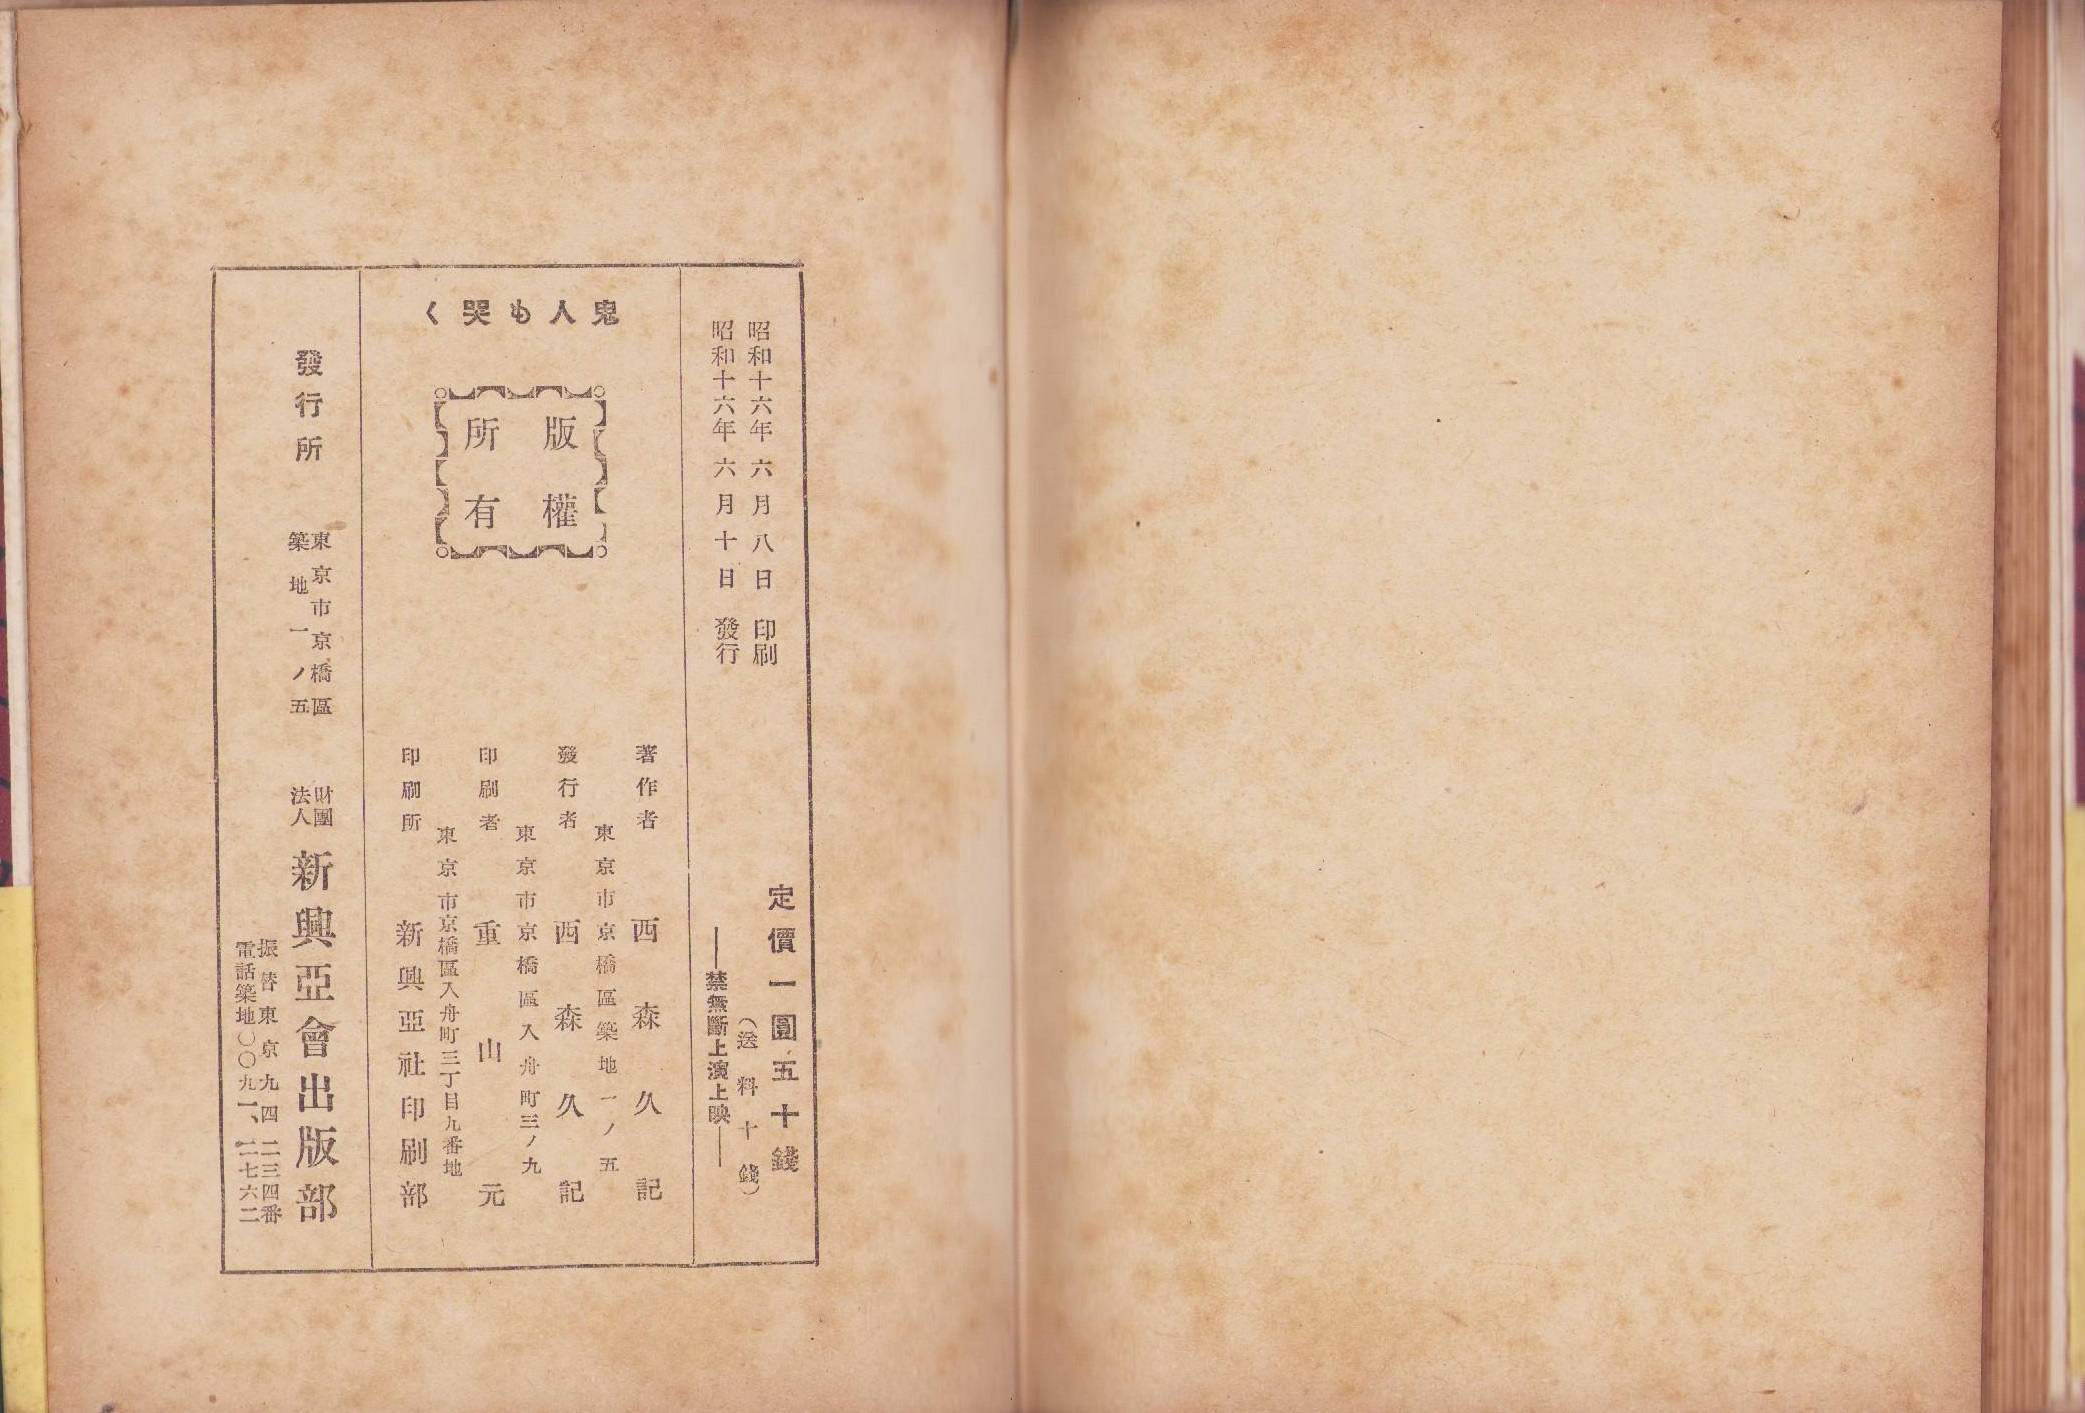 昭和十六年六月八日 印刷
昭和十六年六月十日 發行
定價一圓五十錢
(送料十錢)
――禁無斷上演上映――
鬼人も哭く
版權
所有
著作者 西森久記
東京市京橋區築地一ノ五
發行者 西森久記
東京市京橋區入舟町三ノ九
印刷者 重山元
東京市京橋區入舟町三丁目九番地
印刷所 新興亞社印刷部
發行所
東京市京橋區
築地一ノ五
財團
法人
新興亞會出版部
振替東京九四二三四番
電話築地〇〇九一、二七六二